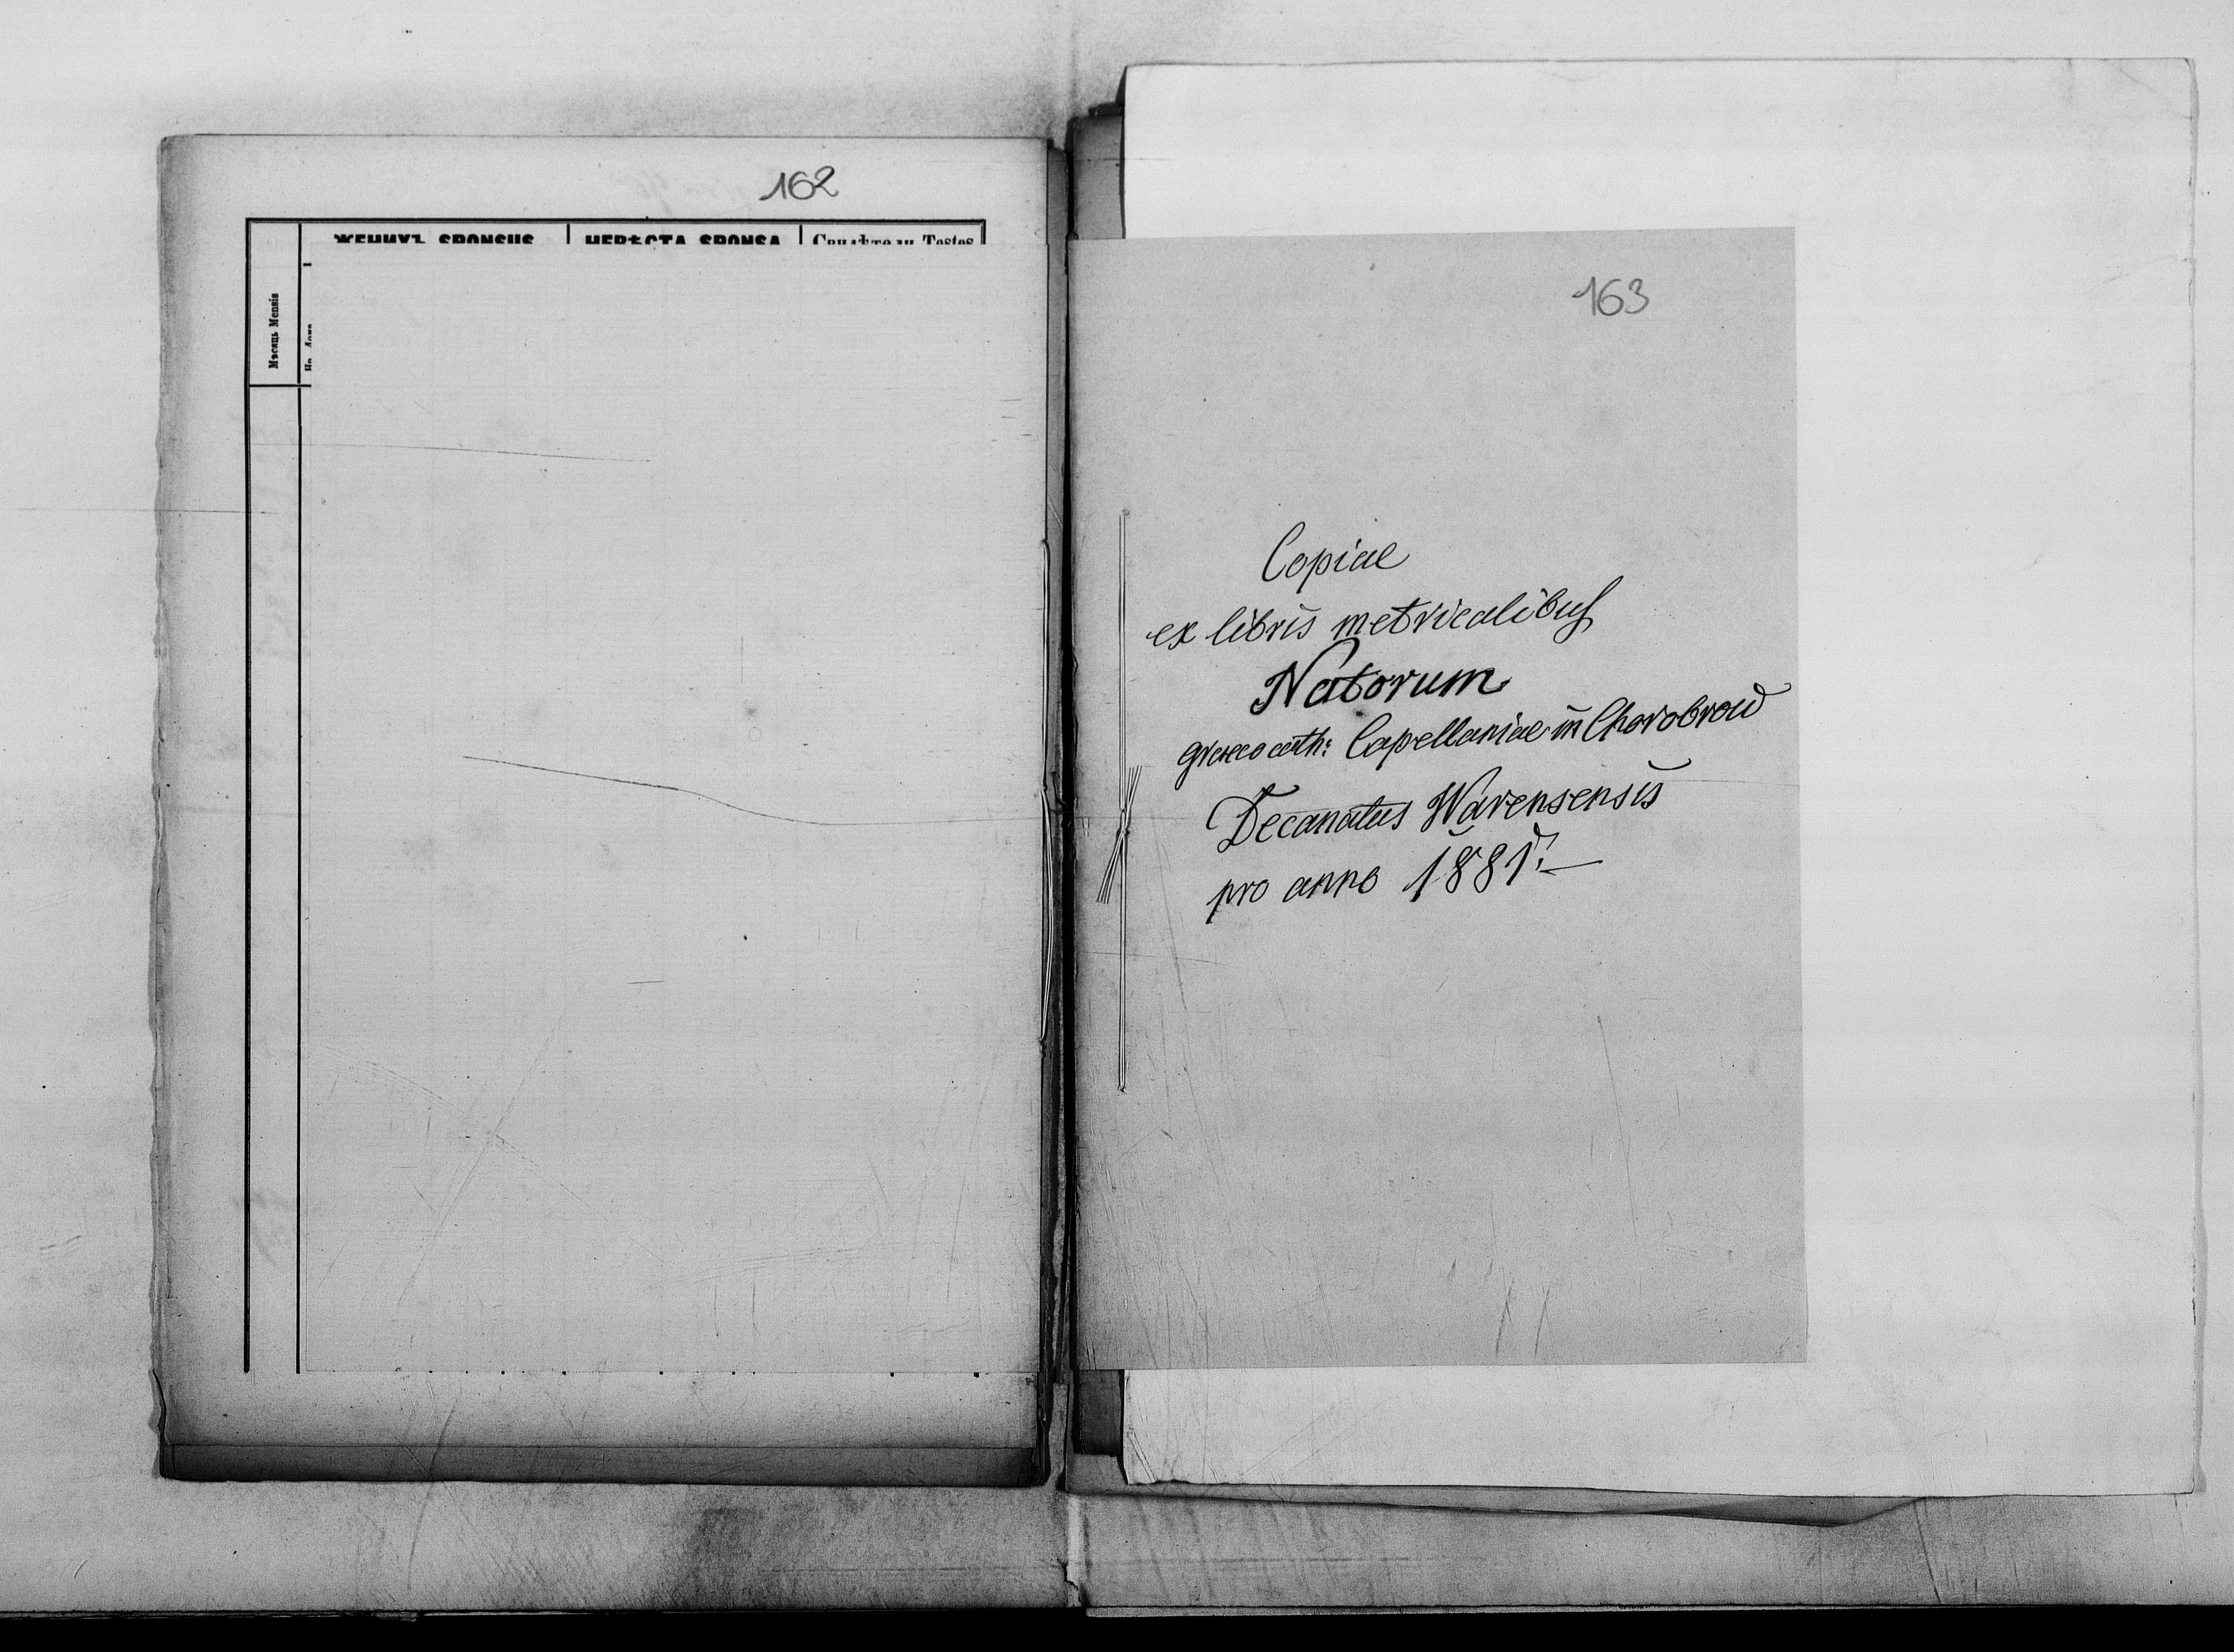 162
ЖЕНИХЪ SPONSUS НЕВѢСТА SPONSA Свидѣтели Testes
Мѣсяць Mensis
163
Copiae
ex libris metricalibus
Natorum
graeco cath: Capellaniae in Chorobrow
Decanatus Warensensis
pro anno 1881.